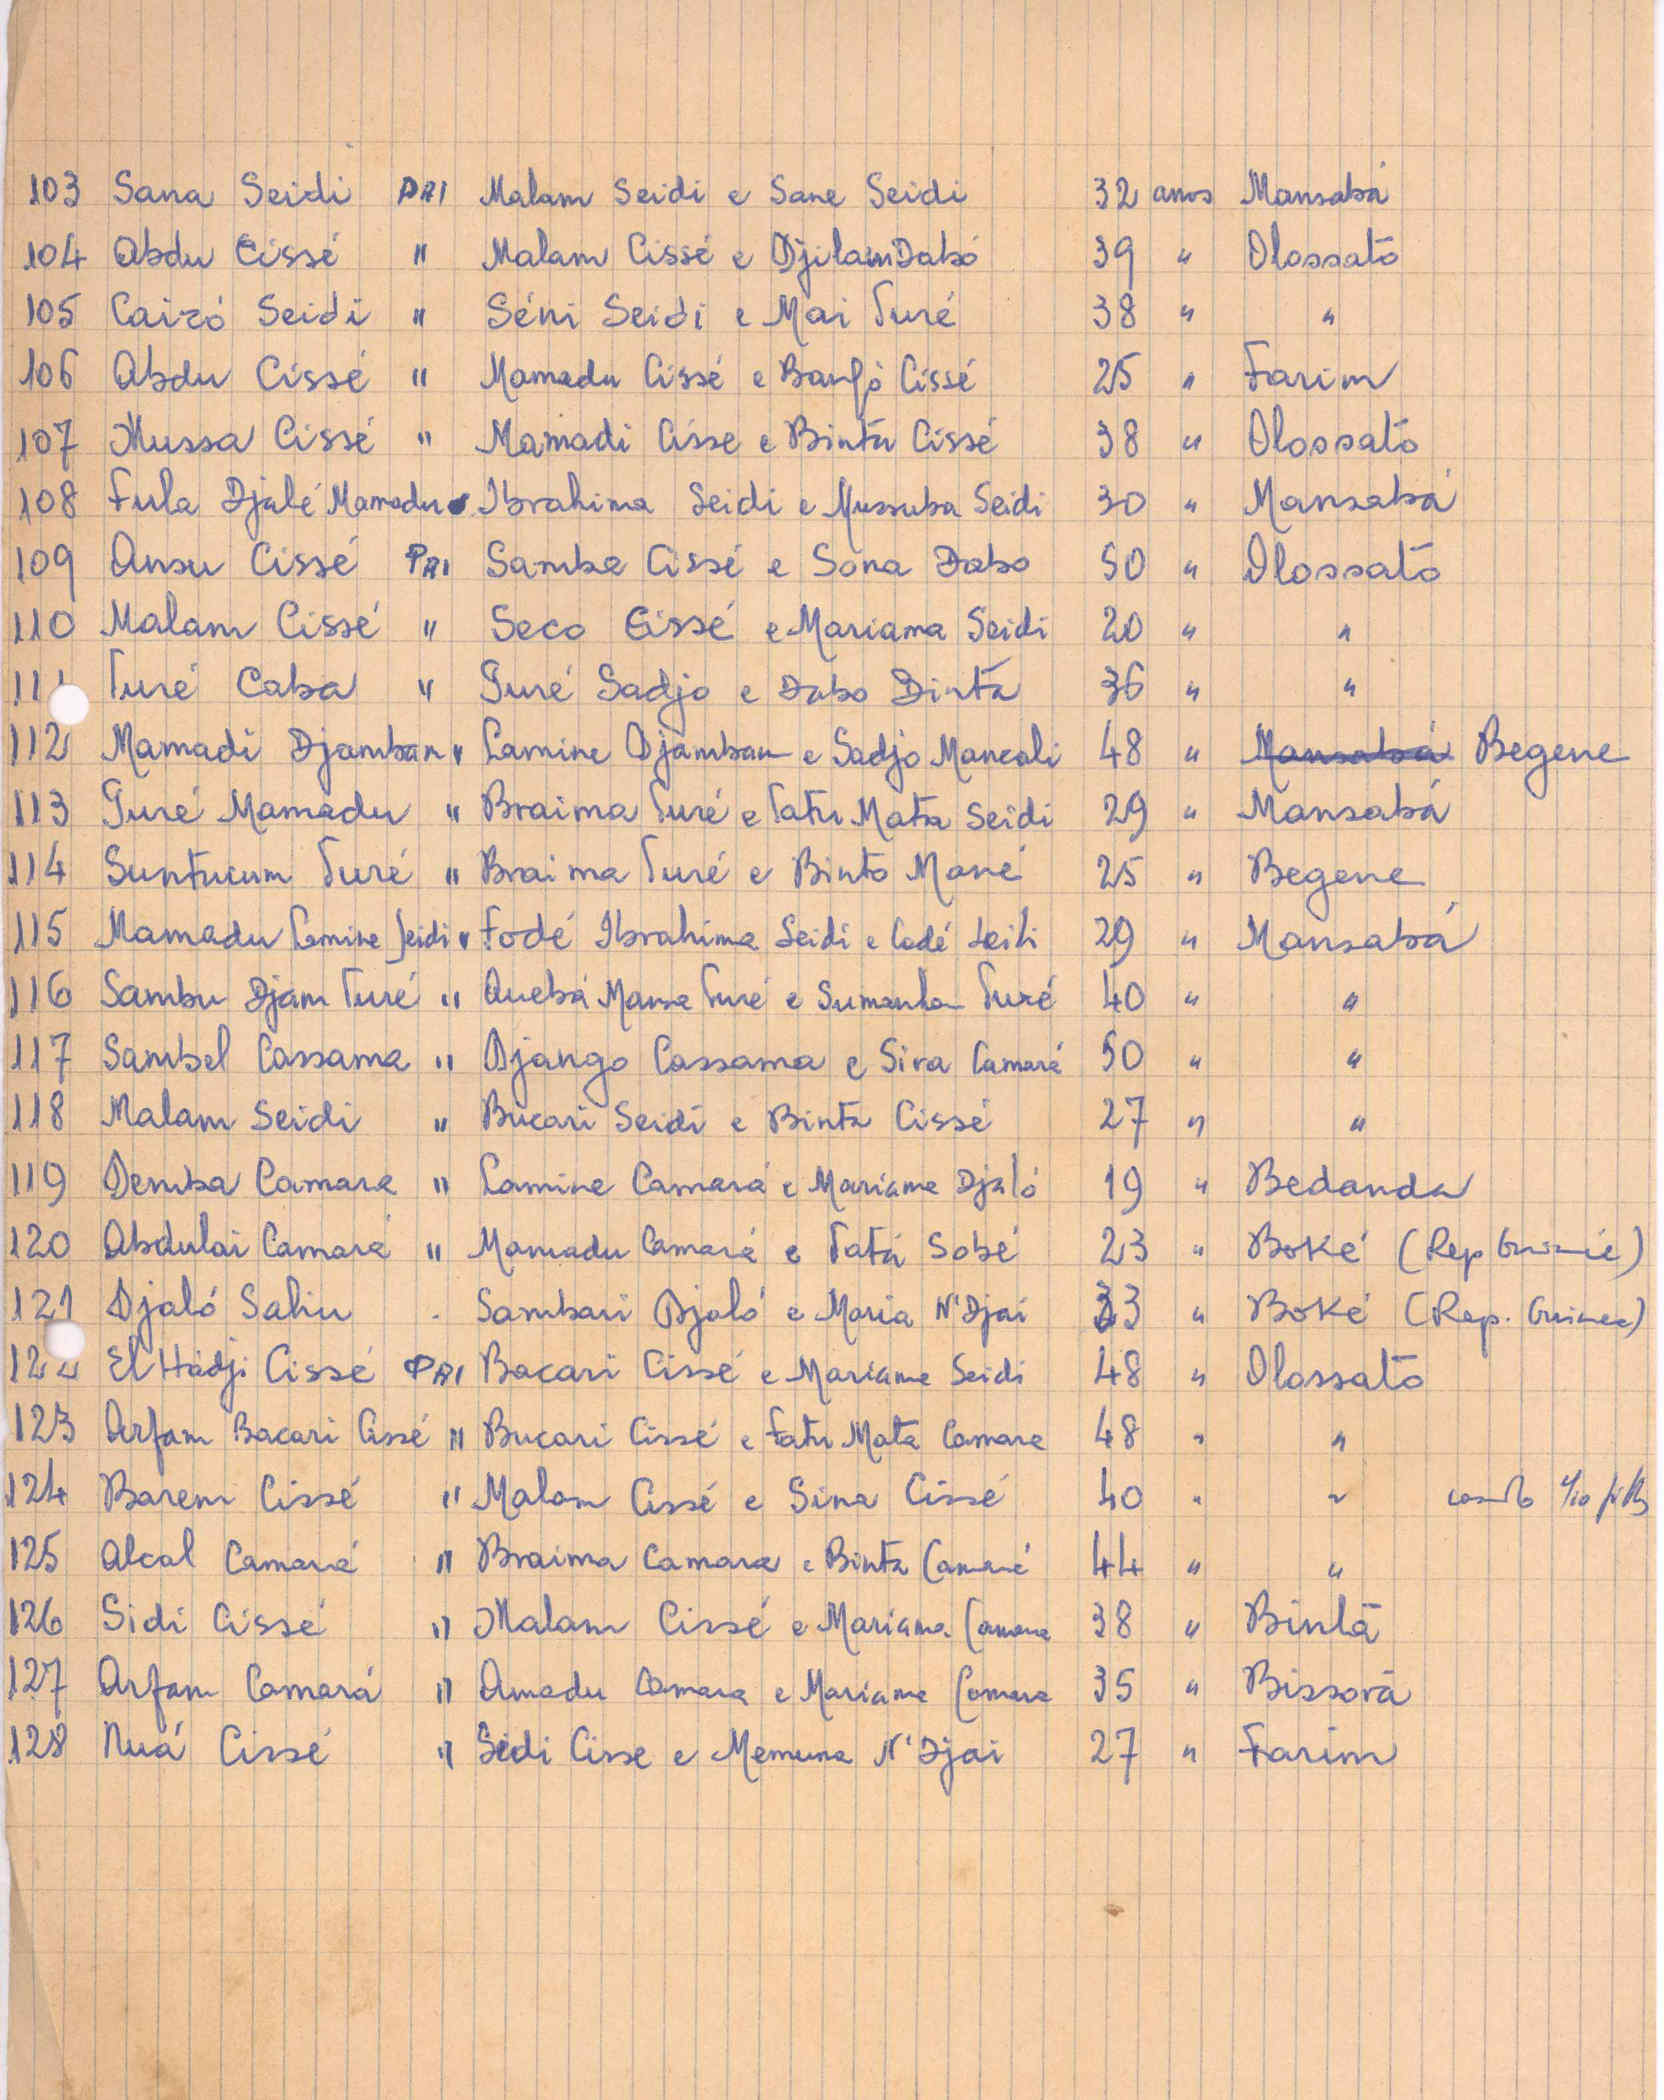 103 Sana Seidi PAI Malam Seidi e Sane Seidi 32 anos Mansabá
104 Abdu Cissé " Malam Cissé e Djilam Dabó 39 " Olossato
105 Cairó Seidi " Séni Seidi e Mai Turé 38 " "
106 Abdu Cissé " Mamadu Cissé e Cissé 25 " Farim
107 Mussa Cissé " Mamadi Cisse e Binta Cissé 38 " Olossato
108 Fula Djalé Mamadu Ibrahima Seidi e Mussuba Seidi 30 " Mansabá
109 Ansu Cissé PAI Samba Cissé e Sona Dabo 50 " Olossato
110 Malam Cissé " Seco Cissé e Mariama Seidi 20 " "
111 Turé Caba " Turé Sadjo e Dabo Binta 36 " "
112 Mamadi Djamban " Lamine Djamban e Sadjo Mancali 48 " Mansabá Begene
113 Turé Mamadu " Braima Turé e Fatu Mata Seidi 29 " Mansabá
114 Suntucum Turé " Braima Turé e Binto Mané 25 " Begene
115 Mamadu Lamine Seidi " Fodé Ibrahima Seidi e Codé Seidi 29 " Mansabá
116 Sambu Djam Turé " Quebá Mansa Turé e Turé 40 " "
117 Sambel Cassama " Django Cassama e Sira Camará 50 " "
118 Malam Seidi " Bucari Seidi e Binta Cissé 27 " "
119 Demba Camara " Lamine Camará e Mariama Djaló 19 " Bedanda
120 Abdulai Camará " Mamadu Camará e Fatá Sobé 23 " Boké (Rep Guinée)
121 Djaló Saliu . Sambari Djaló e Maria N'Djai 33 " Boké (Rep. Guinee)
122 El Hadji Cissé PAI Bacari Cissé e Mariama Seidi 48 " Olossato
123 Arfam Bacari Cissé " Bucari Cissé e Fatu Mata Camara 48 " "
124 Barem Cissé " Malam Cissé e Sina Cissé 40 " "
125 Alcal Camará " Braima Camara e Binta Camará 44 " "
126 Sidi Cissé " Malam Cissé e Mariama Camara 38 " Bintã
127 Arfam Camará " Amadu Camara e Mariama Camara 35 " Bissorã
128 Nuá Cissé " Sidi Cisse e Memuna N'Djai 27 " Farim